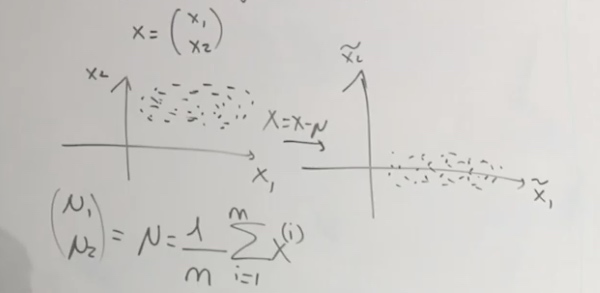 x = (x₁ x₂)
x₂
x̃₂
X = X - μ
x₁
x̃₁
(μ₁ μ₂) = μ = 1/m ∑ᵢ₌₁ᵐ x⁽ⁱ⁾